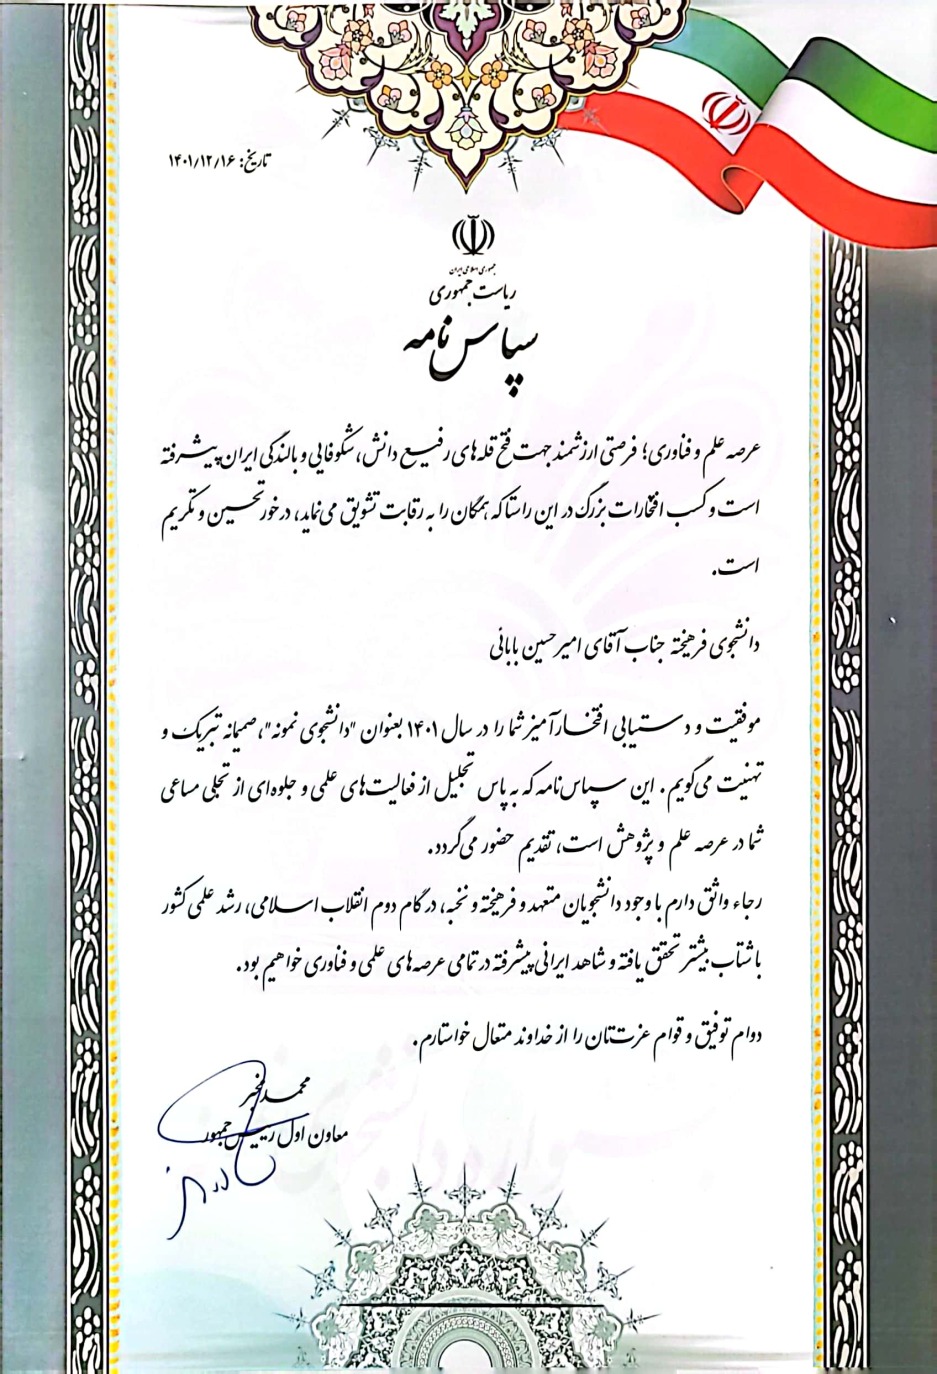 تاریخ: ۱۴۰۱/۱۲/۱۶
جمهوری اسلامی ایران
ریاست جمهوری
سپاس نامه
عرصه علم و فناوری؛ فرصتی ارزشمند جهت فتح قله های رفیع دانش، شکوفایی و بالندگی ایران پیشرفته
است و کسب افتخارات بزرگ در این راستا که همگان را به رقابت تشویق می نماید، در خور تحسین و تکریم
است.
دانشجوی فرهیخته جناب آقای امیرحسین بابائی
موفقیت و دستیابی افتخارآمیز شما را در سال ۱۴۰۱ بعنوان "دانشجوی نمونه"، صمیمانه تبریک و
تهنیت می گویم. این سپاس نامه که به پاس تجلیل از فعالیت های علمی و جلوه ای از تجلی مساعی
شما در عرصه علم و پژوهش است، تقدیم حضور می گردد.
رجاء واثق دارم با وجود دانشجویان متعهد و فرهیخته و نخبه، در گام دوم انقلاب اسلامی، رشد علمی کشور
با شتاب بیشتر تحقق یافته و شاهد ایرانی پیشرفته در تمامی عرصه های علمی و فناوری خواهیم بود.
دوام توفیق و قوام عزت تان را از خداوند متعال خواستارم.
محمد مخبر
معاون اول رییس جمهور